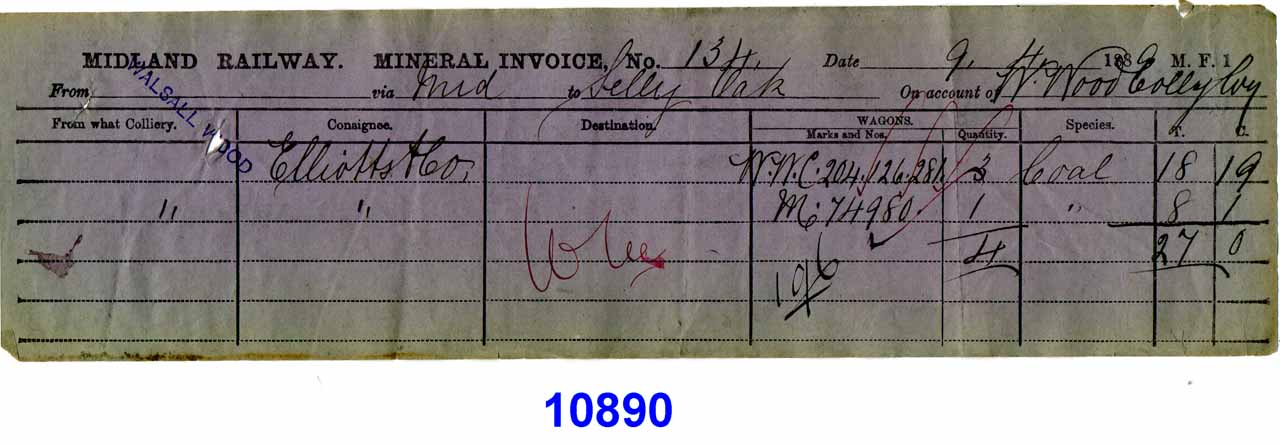 MIDLAND RAILWAY. MINERAL INVOICE, No. 134. Date 9. 4. 188 M. F. 1
From WALSALL WOOD via Mid to Selly Oak On account of W. Wood Colly Coy
From what Colliery. Consignee. Destination. WAGONS. Species. T. C.
Marks and Nos. Quantity.
Elliotts & Co. W.W.C. 204. 126. 281. 3 Coal 18 19
" " M. 74980. 1 " 8 1
4 27 0
10890